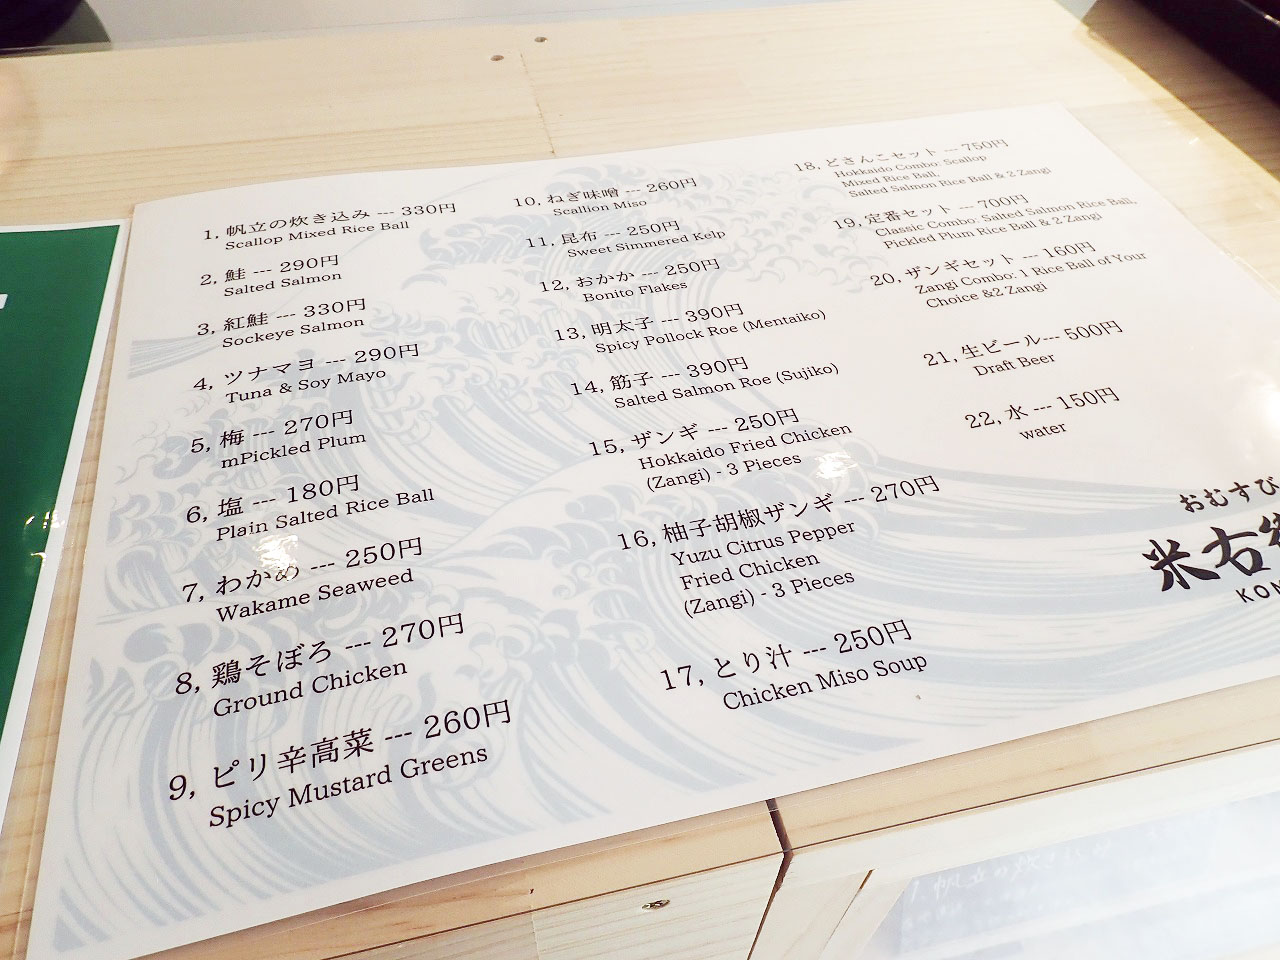 1, 帆立の炊き込み --- 330円
Scallop Mixed Rice Ball
2, 鮭 --- 290円
Salted Salmon
3, 紅鮭 --- 330円
Sockeye Salmon
4, ツナマヨ --- 290円
Tuna & Soy Mayo
5, 梅 --- 270円
mPickled Plum
6, 塩 --- 180円
Plain Salted Rice Ball
7, わかめ --- 250円
Wakame Seaweed
8, 鶏そぼろ --- 270円
Ground Chicken
9, ピリ辛高菜 --- 260円
Spicy Mustard Greens
10, ねぎ味噌 --- 260円
Scallion Miso
11, 昆布 --- 250円
Sweet Simmered Kelp
12, おかか --- 250円
Bonito Flakes
13, 明太子 --- 390円
Spicy Pollock Roe (Mentaiko)
14, 筋子 --- 390円
Salted Salmon Roe (Sujiko)
15, ザンギ --- 250円
Hokkaido Fried Chicken
(Zangi) - 3 Pieces
16, 柚子胡椒ザンギ --- 270円
Yuzu Citrus Pepper
Fried Chicken
(Zangi) - 3 Pieces
17, とり汁 --- 250円
Chicken Miso Soup
18, どさんこセット --- 750円
Hokkaido Combo: Scallop
Mixed Rice Ball,
Salted Salmon Rice Ball & 2 Zangi
19, 定番セット --- 700円
Classic Combo: Salted Salmon Rice Ball,
Pickled Plum Rice Ball & 2 Zangi
20, ザンギセット --- 160円
Zangi Combo: 1 Rice Ball of Your
Choice &2 Zangi
21, 生ビール--- 500円
Draft Beer
22, 水 --- 150円
water
おむすび
米古